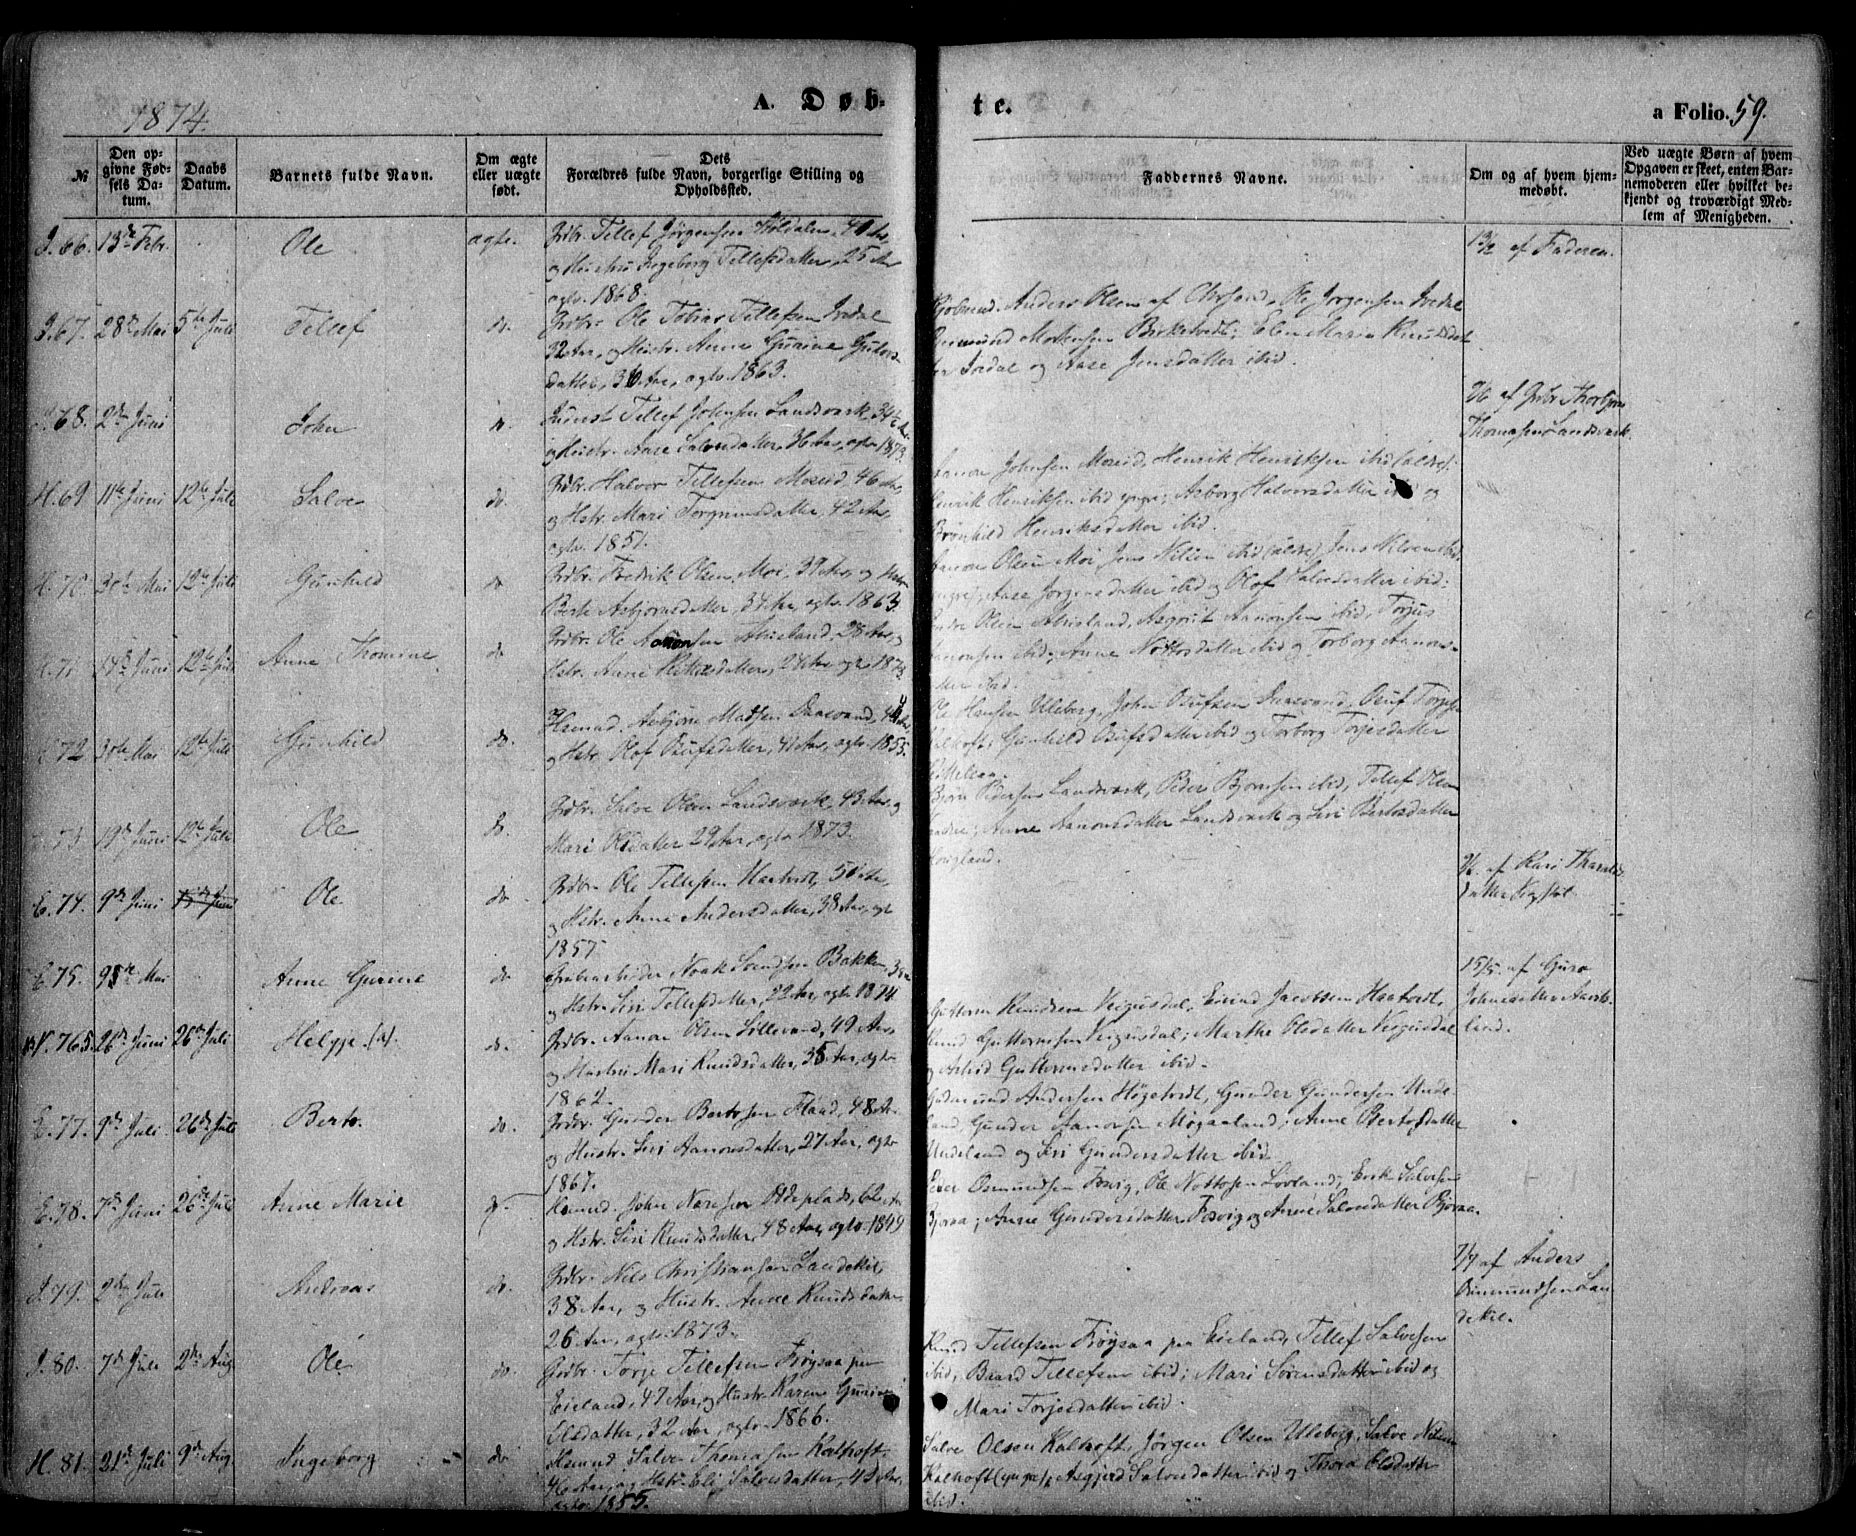 1874.
A. Døb-
te.
a Folio. 59.
№
Den op-
givne Fød-
sels Da-
tum.
Daabs
Datum.
Barnets fulde Navn.
Om ægte
eller uægte
født.
Dets
Forældres fulde Navn, borgerlige Stilling og
Opholdssted.
Faddernes Navne.
Om og af hvem hjem-
medøbt.
Ved uægte Børn af hvem
Opgaven er skeet, enten Bar-
nemoderen eller hvilket be-
kjendt og troværdigt Med-
lem af Menigheden.
I. 66. 13de Febr. Ole ægte. Grdbr. Tellef Jørgensen
og Hustru Ingeborg Tellefsdatter, 25 Aar
egtv. 1868.
13/2 af Faderen.
I. 67. 28de Mai 5te Juli Tellef do. Grdbr. Ole Tobias Tellefsen Ivedal
32 Aar, og Hustr. Anne Gurine
datter, 36 Aar, egtv. 1863.
Anders Olsen af Chrsand, Ole Jørgensen Ivedal
Mortensen Birketvedt; Elen Maria Knudsdat-
ter Ivedal og Aase Jensdatter ibid.
68. 2den Juni John do. Tellef Johnsen Landsværk, 34
og Hustr. Aase Salvesdatter, 36 Aar, egtv. 1873.
2/6 af Grdbr. Thorbjørn
Thomassen Landsværk.
H. 69. 11te Juni 12te Juli Salve do. Grdbr. Halvor Tellefsen Moseid, 46 Aar,
og Hstr. Mari Torgrimsdatter, 42 Aar,
egtv. 1851.
Aanon Johnsen Moseid, Henrik Henriksen ibid (ældre);
Henrik Henriksen ibid yngre; Asborg Halvorsdatter ibid og
Brønhild Henriksdatter ibid.
H. 70. 30te Mai 12te Juli Gunhild do Grdbr. Fredrik Olsen Moi, 39 Aar, og Hstr.
Berte Asbjørnsdatter, 34 Aar, egtv. 1863.
Aanon Olsen Moi, Jens Nilsen ibid (ældre), Jens Nilsen ibid
yngre), Aase Jørgensdatter ibid og Olof Salvesdatter ibid.
71. 14de Juni 12te Juli Anne Thomine do Grdbr. Ole Aanonsen 28 Aar, og
Hstr. Anne 24 Aar, egtv. 1873.
Olsen Asgrit Aanonsen ibid, Torjus
Aanonsen ibid, Anne Nottosdatter ibid og Torborg Aanons-
datter ibid.
72 30te Mai 12te Juli Gunhild do. Husmd. Asbjørn Madsen Daasvand,
og Hstr. Olof Osufsdatter, 41 Aar, egtv. 1855.
Ole Hansen Uleberg, John Osufsen Daasvand, Osuf Torjesen
Kalhoft; Gunhild Osufsdatter ibid og Torborg Torjesdatter
73 19de Juni 12te Juli Ole do. Grdbr. Salve Olsen Landsværk, 43 Aar, og
Mari Olsdatter 29 Aar, egtv. 1873.
Bjørn Pedersen Landsværk, Peder Bjørnsen ibid, Tellef Olsen
Anne Aanonsdatter Landsværk og Siri Bertosdatter
E. 74. 9de Juni Ole do Grdbr. Ole Tellefsen Haatvedt, 50 Aar,
og Hstr. Anne Andersdatter, 38 Aar, egtv
1857.
af Kari Tharalds
datter
E. 75. Mai Anne Gurine do Noak Svendsen Bakken,
og Hstr. Siri Tellefsdatter, 22 Aar, egtv. 1874.
15/5 af Guro
Johnsdatter
land.
765. 26de Juni 26de Juli Helgje (a). do. Grdbr. Aanon Olsen Lillevand, 49 Aar,
og Hustru Mari Knudsdatter, 35 Aar, egtv
1862.
Guttorm Knudsen Veigusdal, Eivind Jacobsen Haatvedt,
Knud Guttormsen Veigusdal; Marthe Olsdatter Veigusdal
og Astrid Guttormsdatter ibid.
E. 77. 9de Juli 26de Juli Berto. do. Grdbr. Gunder Bertosen Flaad, 48 Aar
og Hustr. Siri Aanonsdatter, 27 Aar, egtv
1867.
Gudmund Andersen Høgetvedt, Gunder Gundersen Unde-
land, Gunder Aanonsen Møgaaland; Anne Bertosdatter
Undeland og Siri Gundersdatter ibid.
E. 78. 7de Juni 26de Juli Anne Marie do. Husmd. John Odeplads, 62 Aar
og Hstr. Siri Knudsdatter, 48 Aar, egtv. 1849
Osmundsen Fosvig, Ole Nottosen Lovland; Erik Salvesen
Bjoraa; Anne Gundersdatter Fosvig og Anne Salvesdatter Bjoraa.
I. 79. 2den Juli Andreas do. Grdbr. Nils Christiansen Landekil,
38 Aar, og Hustr. Anne Knudsdatter
26 Aar, egtv. 1873.
7/7 af Anders
Osmundsen Lan
dekil.
I. 80. 7de Juli 2den Aug Ole do Grdbr. Torje Tellefsen Frøysaa paa
Eieland, 47 Aar, og Hustr. Karen Gurine
Olsdatter, 32 Aar, egtv. 1866.
Knud Tellefsen Frøysaa paa Eieland, Tellef Salvesen
ibid, Baard Tellefsen ibid; Mari Sørensdatter ibid og
Mari Torjesdatter ibid.
H. 81. 21de Juli 9de Aug. Ingeborg do Husmd Salve Thomassen Kalhoft,
46 Aar, og Hstr. Eli Salvesdatter, 42 Aar,
egtv. 1855.
Salve Olsen Kalhoft, Jørgen Olsen Uleberg, Salve Nilsen
Kalhoft (yngre), Asgjerd Salvesdatter ibid og Thora Olsdatter
ibid.